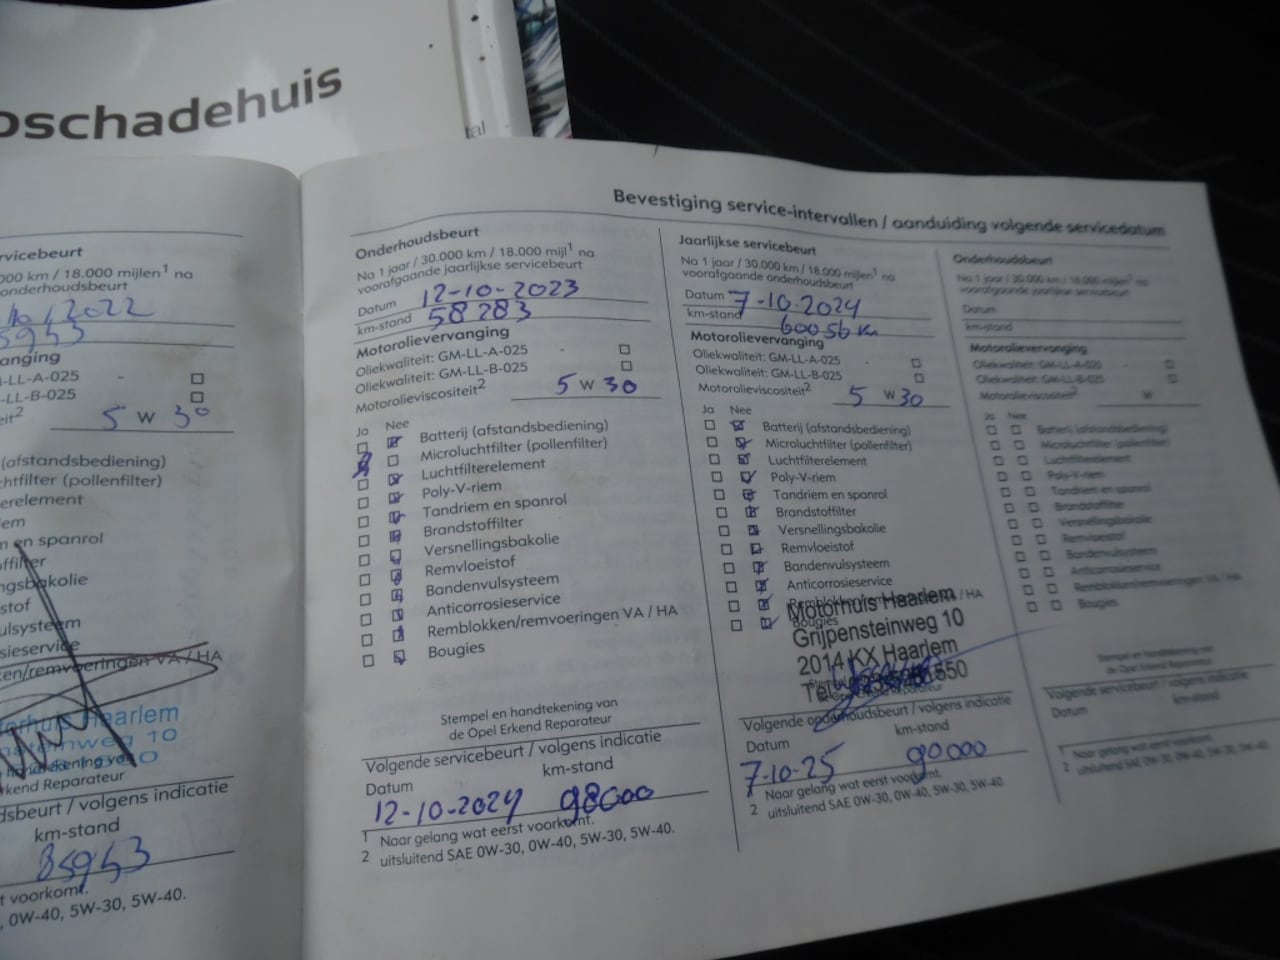 oschadehuis
tal
Bevestiging service-intervallen / aanduiding volgende servicedatum
rvicebeurt
000 km / 18.000 mijlen1 na
onderhoudsbeurt
2022
5943
anging
-LL-A-025 -
-LL-B-025
eit2 5 W 30
(afstandsbediening)
htfilter (pollenfilter)
erelement
em
n en spanrol
offilter
ngsbakolie
stof
ulsysteem
sieservice
ken/remvoeringen VA / HA
Haarlem
weg 10
kend Reparateur
dsbeurt / volgens indicatie
km-stand
85943
t voorkomt.
, 0W-40, 5W-30, 5W-40.
Onderhoudsbeurt
Na 1 jaar / 30.000 km / 18.000 mijl1 na
voorafgaande jaarlijkse servicebeurt
Datum 12-10-2023
km-stand 58283
Motorolievervanging
Oliekwaliteit: GM-LL-A-025 -
Oliekwaliteit: GM-LL-B-025
Motorolieviscositeit2 5 W 30
Ja Nee
Batterij (afstandsbediening)
Microluchtfilter (pollenfilter)
Luchtfilterelement
Poly-V-riem
Tandriem en spanrol
Brandstoffilter
Versnellingsbakolie
Remvloeistof
Bandenvulsysteem
Anticorrosieservice
Remblokken/remvoeringen VA / HA
Bougies
Stempel en handtekening van
de Opel Erkend Reparateur
Volgende servicebeurt / volgens indicatie
Datum km-stand
12-10-2024 98000
1 Naar gelang wat eerst voorkomt.
2 uitsluitend SAE 0W-30, 0W-40, 5W-30, 5W-40.
Jaarlijkse servicebeurt
Na 1 jaar / 30.000 km / 18.000 mijlen1 na
voorafgaande onderhoudsbeurt
Datum 7-10-2024
km-stand 60056 km
Motorolievervanging
Oliekwaliteit: GM-LL-A-025 -
Oliekwaliteit: GM-LL-B-025
Motorolieviscositeit2 5 W 30
Ja Nee
Batterij (afstandsbediening)
Microluchtfilter (pollenfilter)
Luchtfilterelement
Poly-V-riem
Tandriem en spanrol
Brandstoffilter
Versnellingsbakolie
Remvloeistof
Bandenvulsysteem
Anticorrosieservice
/ HA
Bougies
Motorhuis Haarlem
Grijpensteinweg 10
2014 KX Haarlem
Reparateur
Volgende onderhoudsbeurt / volgens indicatie
Datum km-stand
7-10-25 90000
1 Naar gelang wat eerst voorkomt.
2 uitsluitend SAE 0W-30, 0W-40, 5W-30, 5W-40.
Onderhoudsbeurt
Na 1 jaar / 30.000 km / 18.000 mijlen1 na
voorafgaande jaarlijkse servicebeurt
Datum
km-stand
Motorolievervanging
Oliekwaliteit: GM-LL-A-025
Oliekwaliteit: GM-LL-B-025
Motorolieviscositeit2 W
Ja Nee
Batterij (afstandsbediening)
Microluchtfilter (pollenfilter)
Luchtfilterelement
Poly-V-riem
Tandriem en spanrol
Brandstoffilter
Versnellingsbakolie
Remvloeistof
Bandenvulsysteem
Anticorrosieservice
Remblokken/remvoeringen VA / HA
Bougies
Stempel en handtekening van
de Opel Erkend Reparateur
Volgende servicebeurt / volgens indicatie
Datum km-stand
1 Naar gelang wat eerst voorkomt.
2 uitsluitend SAE 0W-30, 0W-40, 5W-30, 5W-40.